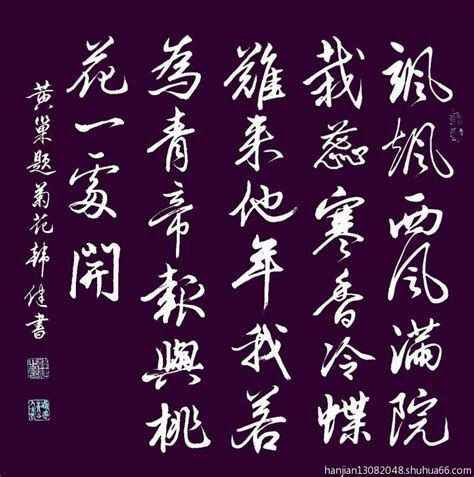 颯颯西风滿院
栽蕊寒香冷蝶
難来他年我若
為青帝報與桃
花一處開
黄巢題菊花韩健書
hanjian13082048.shuhua66.com